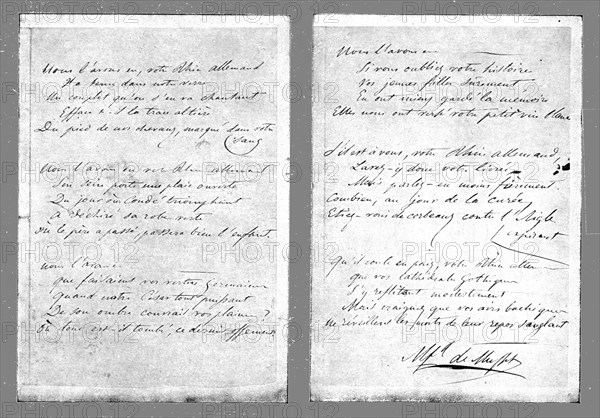 Nous l'avons eu, votre Rhin allemand
Il a tenu dans notre verre
Un couplet qu'on s'en va chantant
Efface-t-il la trace altière
Du pied de nos chevaux, marqué dans votre
sang
Nous l'avons eu votre Rhin allemand
Son sein porte une plaie ouverte
Du jour où Condé triomphant
A déchiré sa robe verte
Où le père a passé, passera bien l'enfant.
Nous l'avons
que faisaient vos vertus Germaines
Quand notre César tout puissant
De son ombre couvrait vos plaines ?
Où donc est-il tombé, ce dernier ossement
Nous l'avons eu
Si vous oubliez votre histoire
Vos jeunes filles sûrement
En ont mieux gardé la mémoire
Elles nous ont versé votre petit vin blanc
S'il est à vous, votre Rhin allemand,
Lavez-y donc votre livrée
Mais parlez-en moins fièrement.
Combien, au jour de la curée,
Etiez-vous de corbeaux contre l'Aigle
expirant
qu'il coule en paix, votre Rhin allemand
que vos cathédrales Gothiques
s'y reflètent modestement
Mais craignez que vos airs bachiques
ne réveillent les morts de leur repos sanglant
Alfd de Musset
PHOTO12